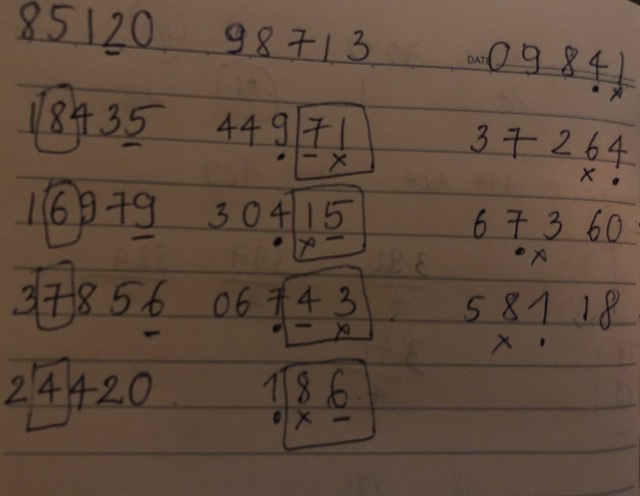 85120 98713 DATE 09841
18435 44971 37264
16979 30415 67360
37856 06743 58118
24420 186